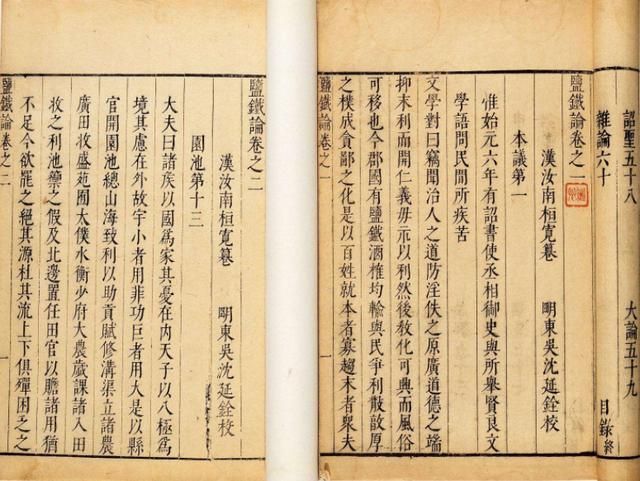 詔聖五十八 大論五十九
雜論六十 目錄終
鹽鐵論卷之一
漢汝南桓寬纂 明東吳沈延銓校
本議第一
惟始元六年有詔書使丞相御史與所舉賢良文
學語問民間所疾苦
文學對曰竊聞治人之道防淫佚之原廣道德之端
抑末利而開仁義毋示以利然後教化可興而風俗
可移也今郡國有鹽鐵酒榷均輸與民爭利散敦厚
之樸成貪鄙之化是以百姓就本者寡趨末者衆夫
鹽鐵論卷之一 一
鹽鐵論卷之二
漢汝南桓寬纂 明東吳沈延銓校
園池第十三
大夫曰諸侯以國爲家其憂在內天子以八極爲
境其慮在外故宇小者用菲功巨者用大是以縣
官開園池總山海致利以助貢賦修溝渠立諸農
廣田收盛苑囿太僕水衡少府大農歲課諸入田
牧之利池籞之假及北邊置任田官以贍諸用猶
不足今欲罷之絕其源杜其流上下俱殫困乏之
鹽鐵論卷之二 一